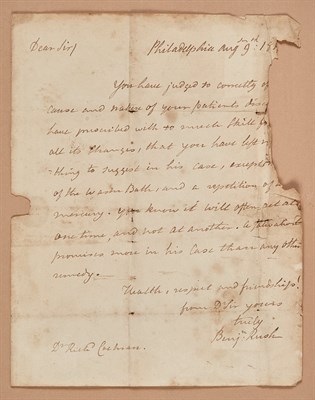 Dear Sir/ Philadelphia Augt 9th: 18
You have judged so correctly of
cause and nature of your patients dise
have prescribed with so much skill for
all its changes, that you have left no
thing to suggest in his case, except
of the warm Bath, and a repetition of
mercury. You know it will often act at
one time, and not at another. A
promises more in his case than any other
remedy.
Health, respect and friendship!
from Dr Sir yours
truly
Benjn Rush
Dr Richd Cochran.